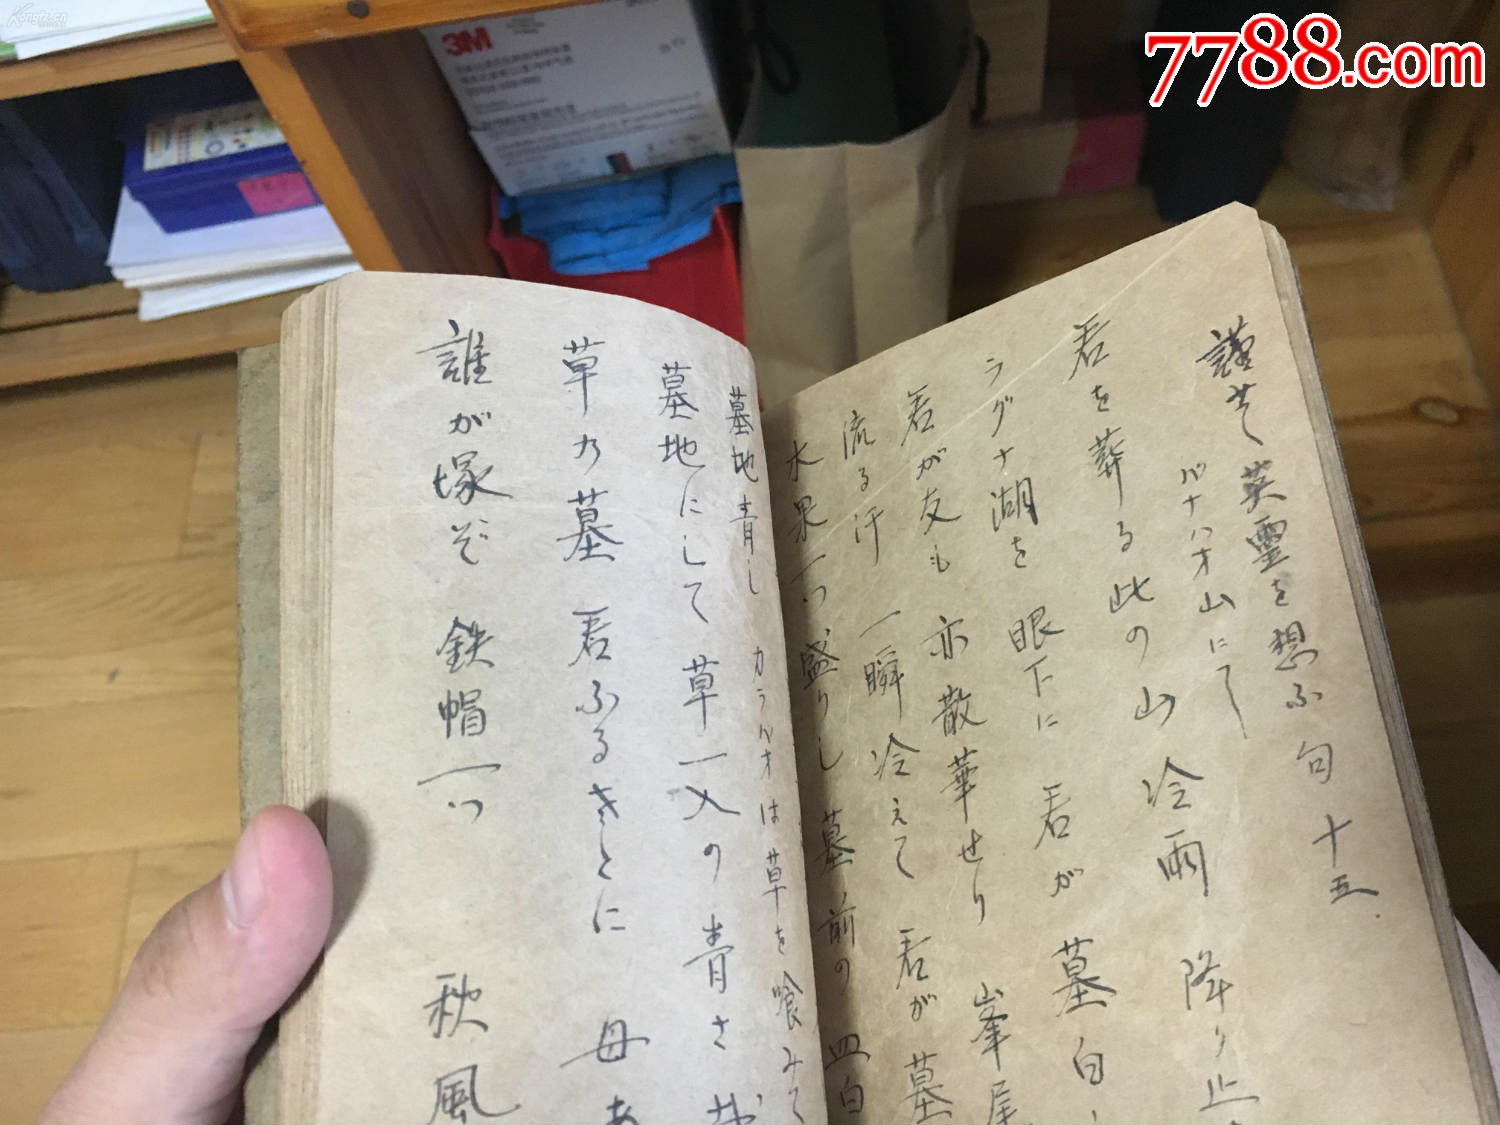 謹みて英霊を想ふ句十五
バナハオ山にて
君を葬る此の山冷雨降り止
ラグナ湖を眼下に君が墓白
君が友も亦散華せり峯尾
流る汗一瞬冷えて君が墓
水果一つ盛りし墓前の皿白
墓地青しカラバオは草を喰みて
墓地にして草一入の青さ
草乃墓君ふるさとに母あ
誰が塚ぞ鉄帽一つ秋風
7788.com
3M
Kongfz.cn